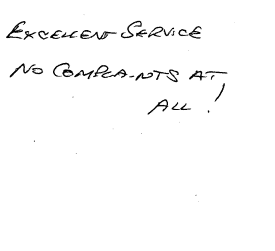 EXCELLENT SERVICE
NO COMPLAINTS AT
ALL!